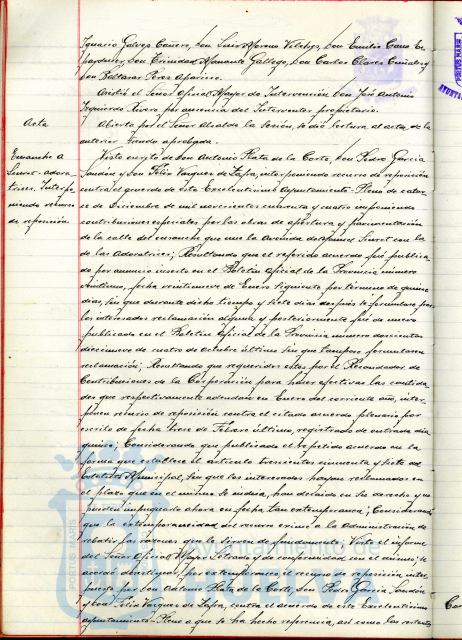 Ignacio Gálvez Cañero, Don Luis Moreno Vélchez, Don Emilio Cano
Don Trinidad Amante Gallego, Don Carlos Clares
Don Baltasar Pérez Aparicio.
Asistió el Señor Oficial Mayor de Intervención Don José Antonio
Izquierdo Rivero por ausencia del Interventor propietario.
Acta
Abierta por el Señor Alcalde la sesión, se dió lectura al acta de la
anterior siendo aprobada.
Ensanche a
Sunset-adora-
trices. Interpo-
niendo recurso
de reposición
Visto escrito de Don Antonio Plata de la Corte, Don Pedro García
y Don Félix Vázquez de Zafra, interponiendo recurso de reposición
contra el acuerdo de este Excelentísimo Ayuntamiento-Pleno de cator-
ce de Diciembre de mil novecientos cincuenta y cuatro imponiendo
contribuciones especiales por las obras de apertura y pavimentación
de la calle del ensanche que une la Avenida de Sunset con la
de las Adoratrices; Resultando que el referido acuerdo fué publica-
do por anuncio inserto en el Boletín Oficial de la Provincia número
veintiuno, fecha veintinueve de Enero siguiente por término de quince
días, sin que durante dicho tiempo y siete días después se formulara por
los interesados reclamación alguna y posteriormente fué de nuevo
publicado en el Boletín Oficial de la Provincia número doscientos
diecinueve de cuatro de octubre último sin que tampoco formularan
reclamación; Resultando que requeridos estos por el Recaudador de
Contribuciones de la Corporación para hacer efectivas las cantida-
des que respectivamente adeudan en Enero del corriente año, inter-
ponen recurso de reposición contra el citado acuerdo plenario por
escrito de fecha trece de Febrero último, registrado de entrada día
quince; Considerando que publicado el repetido acuerdo en la
forma que establece el artículo trescientos cincuenta y siete del
Estatuto Municipal, sin que los interesados hayan reclamado en
el plazo que en el mismo se indica, han decaído en su derecho y no
pueden impugnarlo ahora en fecha tan extemporánea; Considerando
que la extemporaneidad del recurso exime a la Administración de
rebatir las razones que le sirven de fundamento. Visto el informe
del Señor Oficial Mayor Letrado y de conformidad con el mismo; se
acordó desestimar, por extemporáneo, el recurso de reposición inter-
puesto por Don Antonio Plata de la Corte, Don Pedro García
y Don Félix Vázquez de Zafra, contra el acuerdo de este Excelentísimo
Ayuntamiento-Pleno a que se ha hecho referencia, así como los restantes
PORTUS MARIS